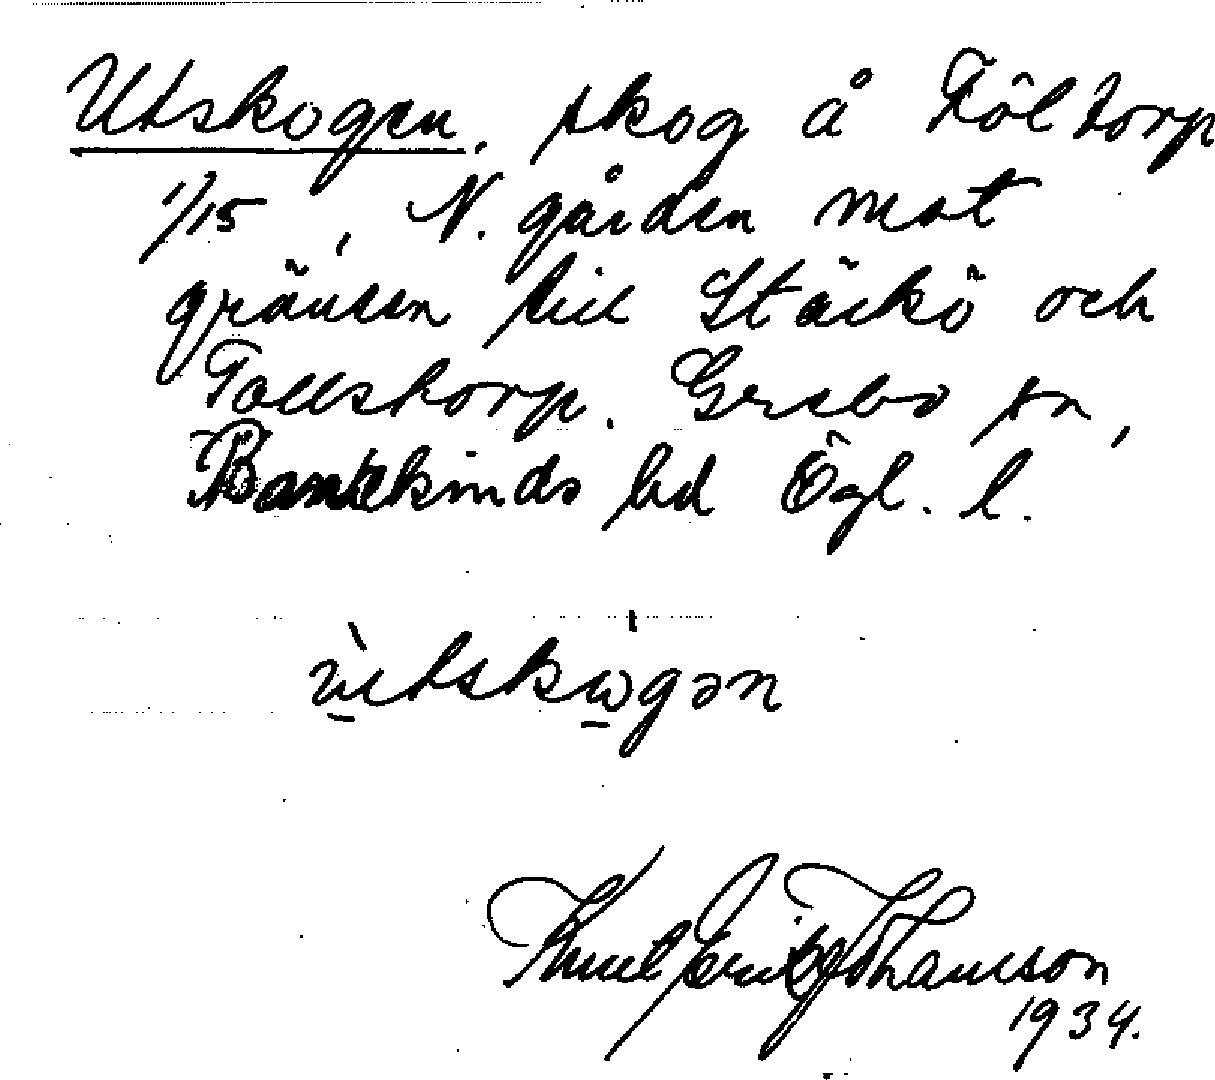 Utskogen. skog åFöltorp
1/15, N. gården mot
gränsen till Stäckö och
Tollstorp. Grebo sn,
Bankekinds hd Ögl. l.
ùtskωgən
Knut Erik Johansson
1934.